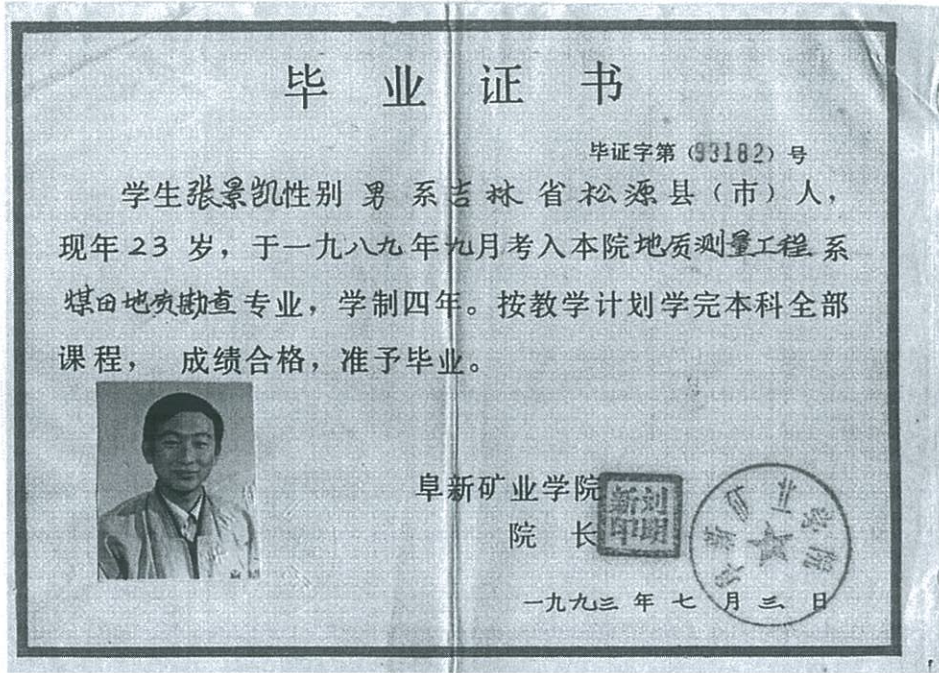 毕业证书
毕证字第（93182）号
学生张景凯性别 男 系吉林省松源县（市）人，
现年23岁，于一九八九年九月考入本院地质测量工程系
煤田地质勘查专业，学制四年。按教学计划学完本科全部
课程， 成绩合格，准予毕业。
阜新矿业学院
院 长
刘明
新印
阜新矿业学院
一九九三年七月三日